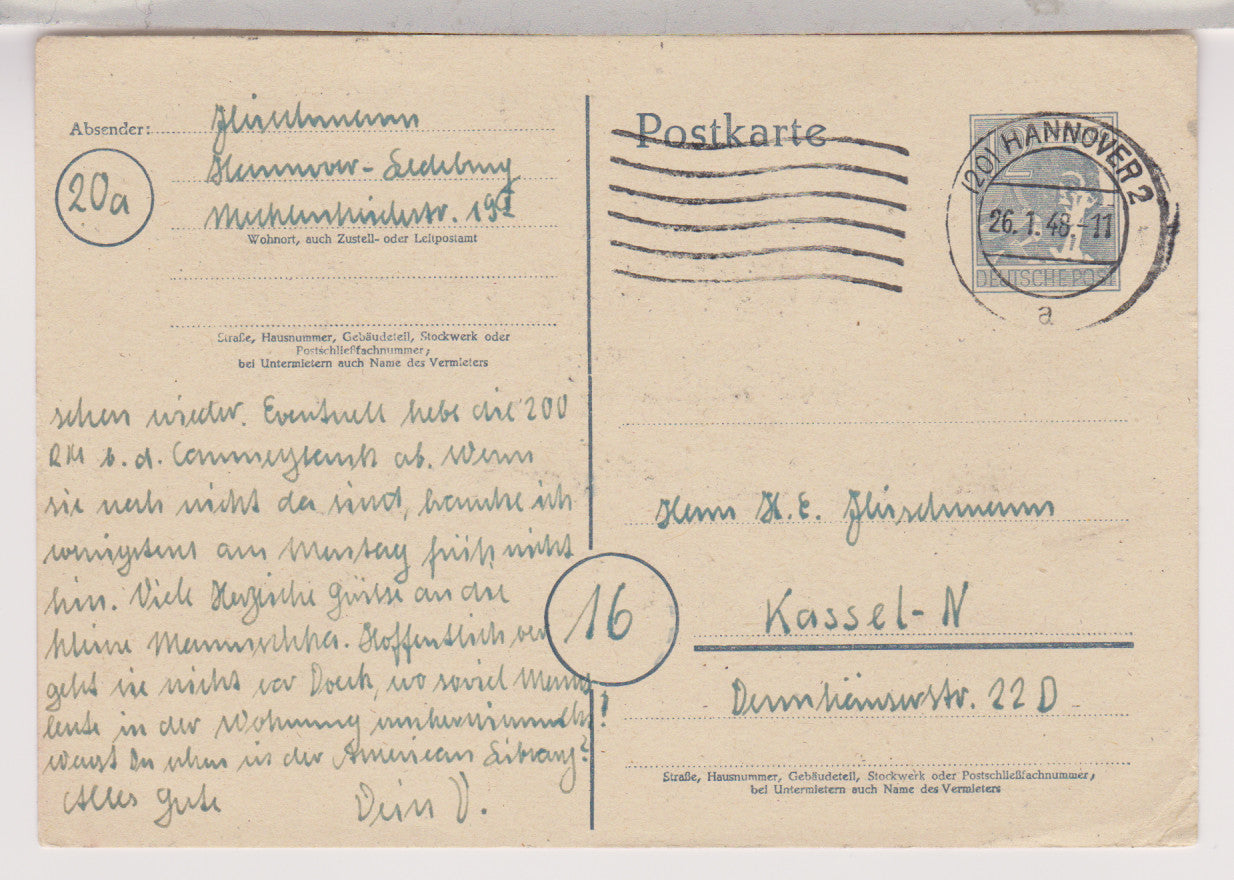 Absender: Hirschmann
20a
Hannover-Ledeburg
Mecklenheidestr. 19
Wohnort, auch Zustell- oder Leitpostamt
Straße, Hausnummer, Gebäudeteil, Stockwerk oder
Postschließfachnummer;
bei Untermietern auch Name des Vermieters
sehen wieder. Eventuell hebe die 200
RM b. d. Commerzbank ab. Wenn
sie noch nicht da sind, brauche ich
wenigstens am Montag früh nicht
hin. Viele Herzliche Grüsse an die
kleine Hoffentlich ver
geht sie nicht vor soviel
leute in der Wohnung
warst Du schon in der American Library?
Alles Gute
Dein V.
Postkarte
(20) HANNOVER 2
26.1.48.-11
a
DEUTSCHE POST
Herrn H. E. Hirschmann
16
Kassel-N
22 D
Straße, Hausnummer, Gebäudeteil, Stockwerk oder Postschließfachnummer;
bei Untermietern auch Name des Vermieters